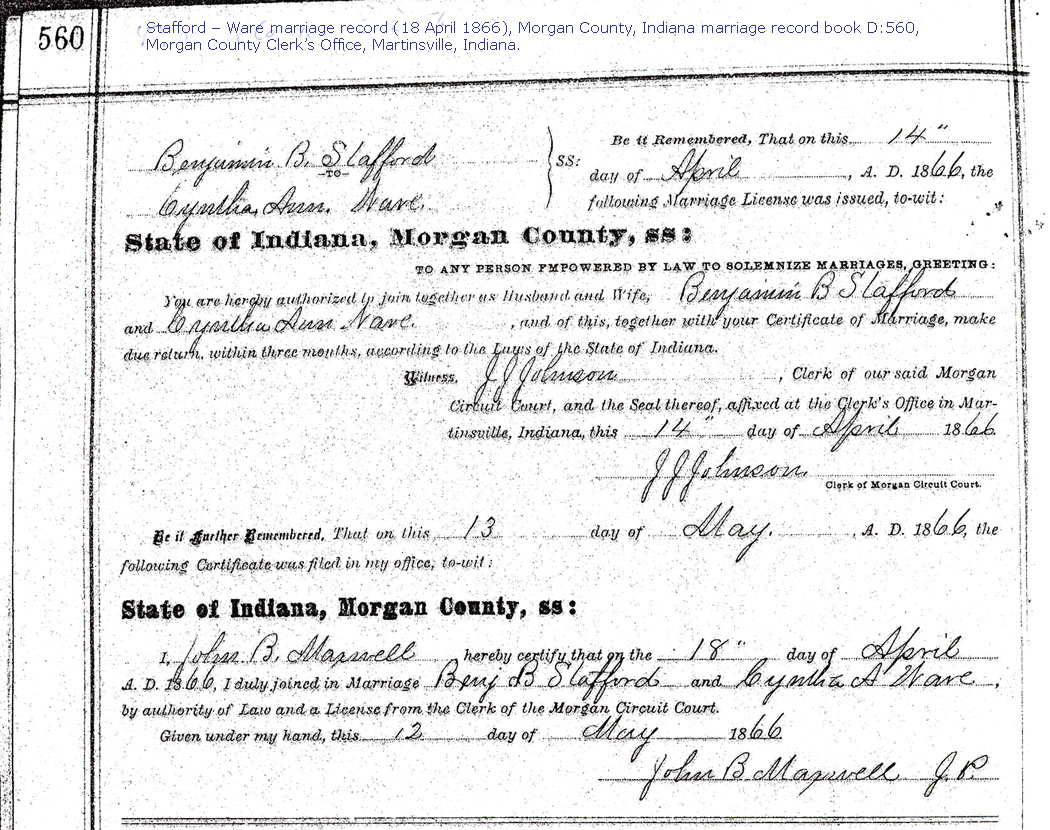 Stafford – Ware marriage record (18 April 1866), Morgan County, Indiana marriage record book D:560,
Morgan County Clerk's Office, Martinsville, Indiana.
560
Be it Remembered, That on this 14"
Benjamin B. Stafford
TO
SS:
day of April, A. D. 1866, the
Cynthia Ann. Ware.
following Marriage License was issued, to-wit:
State of Indiana, Morgan County, ss:
TO ANY PERSON EMPOWERED BY LAW TO SOLEMNIZE MARRIAGES, GREETING:
You are hereby authorized to join together as Husband and Wife, Benjamin B Stafford
and Cynthia Ann Ware. , and of this, together with your Certificate of Marriage, make
due return, within three months, according to the Laws of the State of Indiana.
Witness, J J Johnson , Clerk of our said Morgan
Circuit Court, and the Seal thereof, affixed at the Clerk's Office in Mar-
tinsville, Indiana, this 14" day of April 1866
J J Johnson.
Clerk of Morgan Circuit Court.
Be it Further Remembered, That on this 13 day of May. , A. D. 1866, the
following Certificate was filed in my office, to-wit:
State of Indiana, Morgan County, ss:
I, John B. Maxwell hereby certify that on the 18" day of April
A. D. 1866, I duly joined in Marriage Benj B Stafford and Cyntha A Ware ,
by authority of Law and a License from the Clerk of the Morgan Circuit Court.
Given under my hand, this 12 day of May 1866
John B Maxwell J. P.